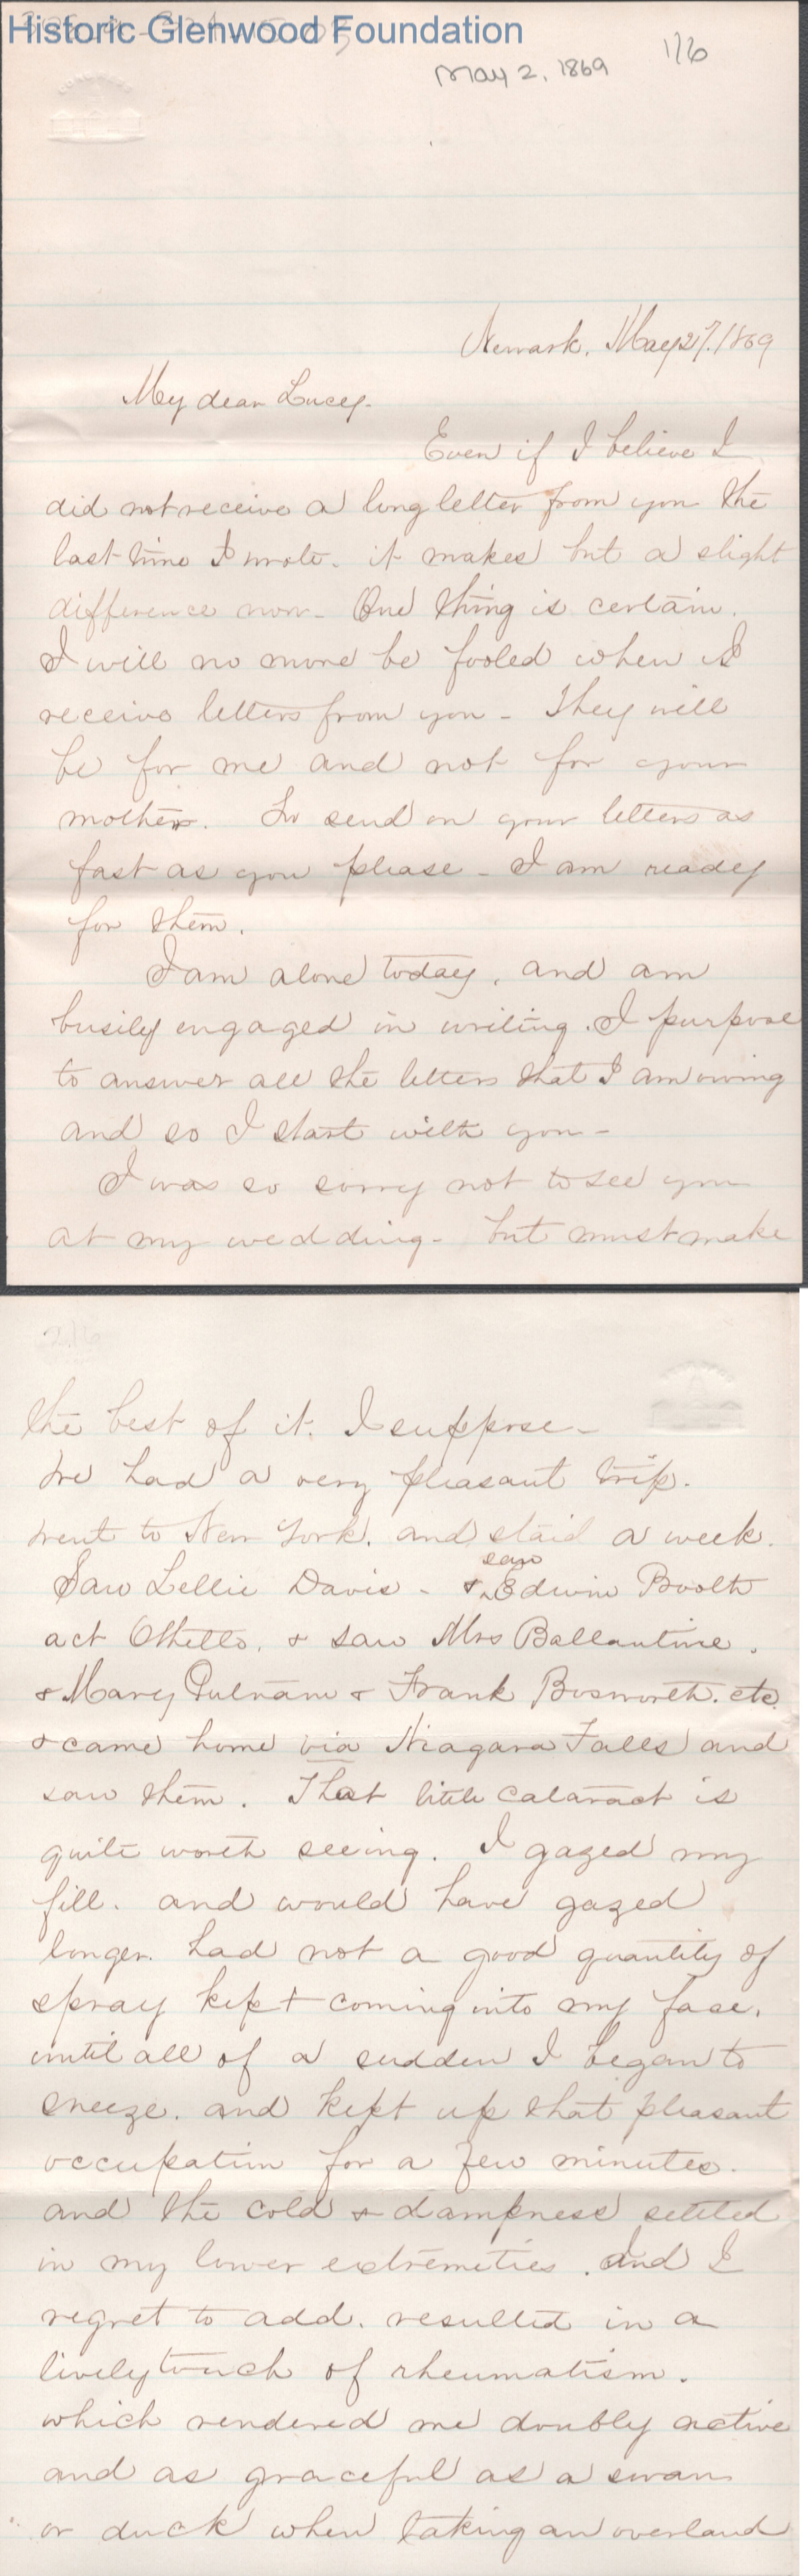 Historic Glenwood Foundation
May 2, 1869 1/6
Newark, May 27. 1869
My dear Lucy.
Even if I believe I
did not receive a long letter from you the
last time I wrote. it makes but a slight
difference now - One thing is certain.
I will no more be fooled when I
receive letters from you - They will
be for me and not for your
mother. So send on your letters as
fast as you please - I am ready
for them.
I am alone today, and am
busily engaged in writing. I purpose
to answer all the letters that I am owing
and so I start with you -
I was so sorry not to see you
at my wedding - but must make
the best of it. I suppose -
We had a very pleasant trip.
went to New York. and staid a week.
Saw Lellie Davis - &
saw
Edwin Booth
act Othello, & saw Mrs Ballantine.
& Mary Putnam & Frank Bosworth. etc.
& came home via Niagara Falls and
saw them. That little cataract is
quite worth seeing. I gazed my
fill. and would have gazed
longer. had not a good quantity of
spray kept coming into my face,
until all of a sudden I began to
sneeze. and kept up that pleasant
occupation for a few minutes.
and the cold & dampness settled
in my lower extremeties. And I
regret to add. resulted in a
lively touch of rheumatism.
which rendered me doubly active
and as graceful as a swan
or duck when taking an overland